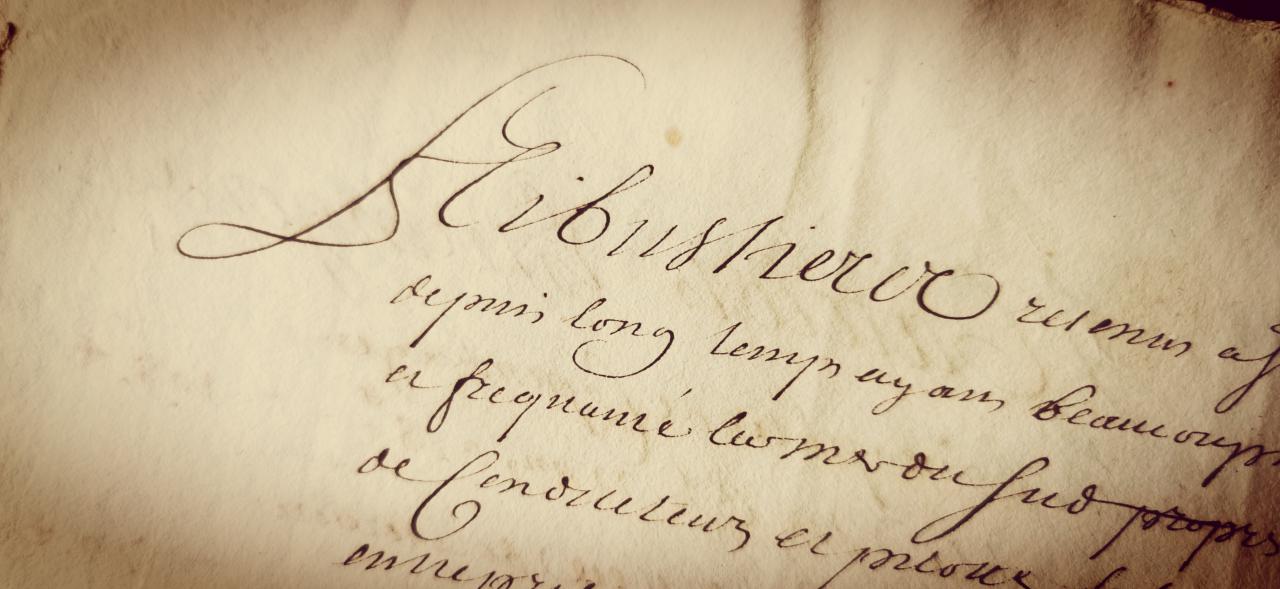 Flibustiers retenus a
depuis long temps ayans beaucoup
et frequanté les mers du Sud propres
de Conducteurs et pilotte
entrepri